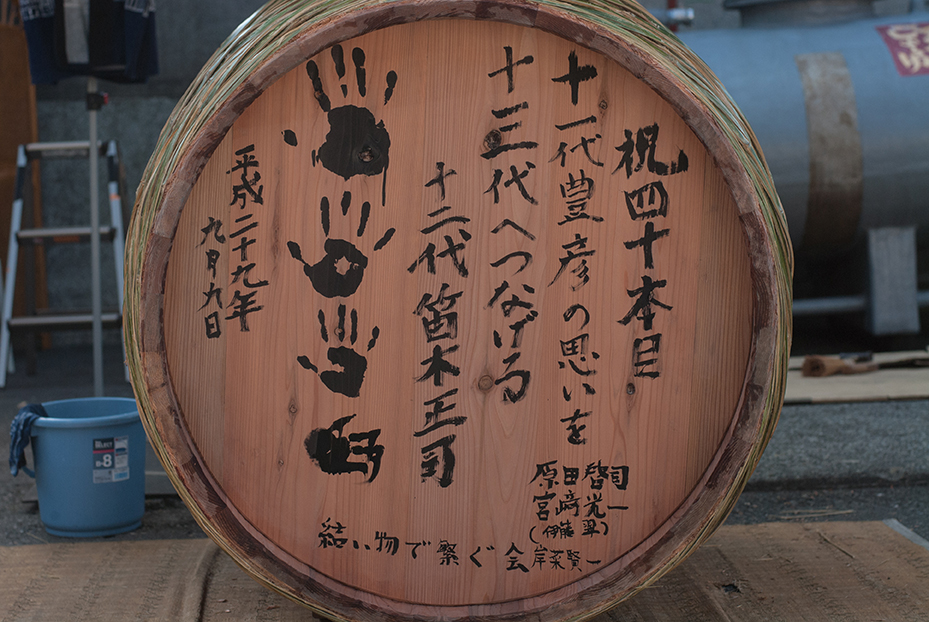 祝四十本目。
十一代豊彦の思いを
十三代へつなげる
十二代笛木正司
平成二十九年
九月九日
原田啓司
宮﨑光一
(伊藤翠)
岸菜賢一
結い物で繋ぐ会
SELECT
B-8